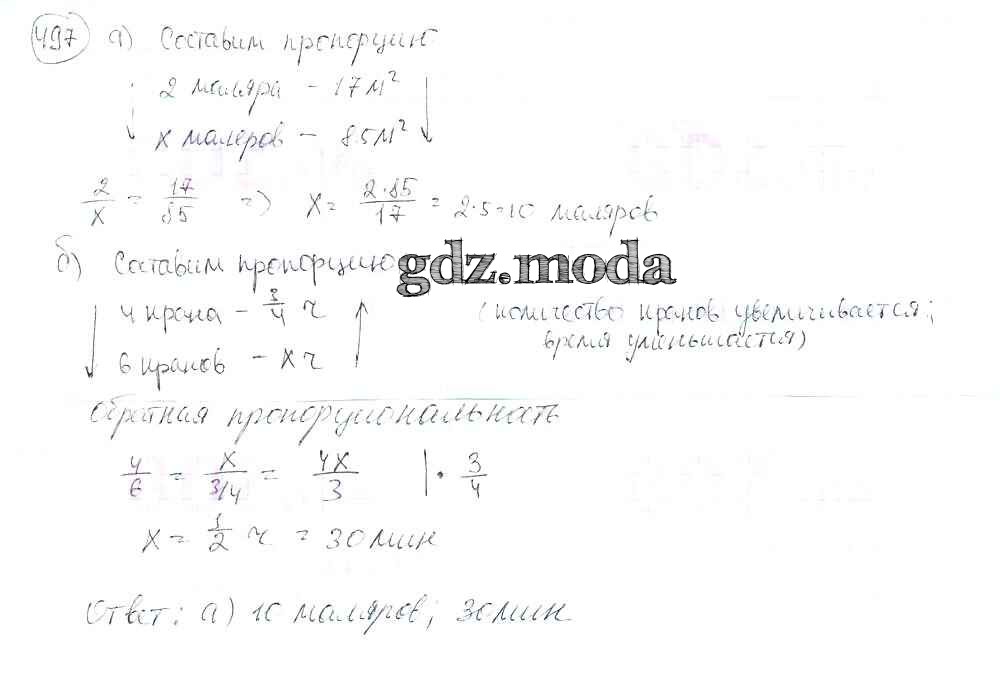 497 а) Составим пропорцию
2 маляра - 17 м²
х малеров - 85 м²
2/х = 17/85 => х = 2·85/17 = 2·5=10 маляров
б) Составим пропорцию
gdz.moda
4 крана - 3/4 ч
6 кранов - х ч
(количество кранов увеличивается;
время уменьшается)
Обратная пропорциональность
4/6 = х/3/4 = 4х/3 | · 3/4
х = 1/2 ч = 30 мин
Ответ: а) 10 маляров; 30 мин